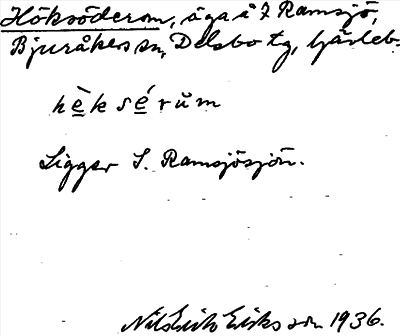 Höksöderom, äga å 7 Ramsjö,
Bjuråkers sn, Delsbo tg, Gävleb.
hèksérŭm
Ligger S. Ramsjösjön.
Nils Erik Eriksson 1936.